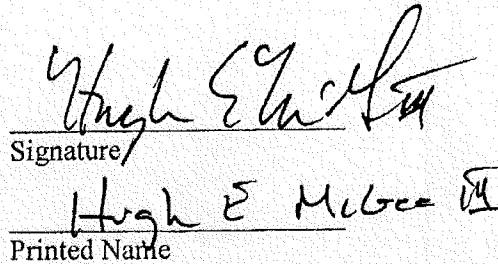 Hugh E McGee III
Signature
Hugh E McGee III
Printed Name